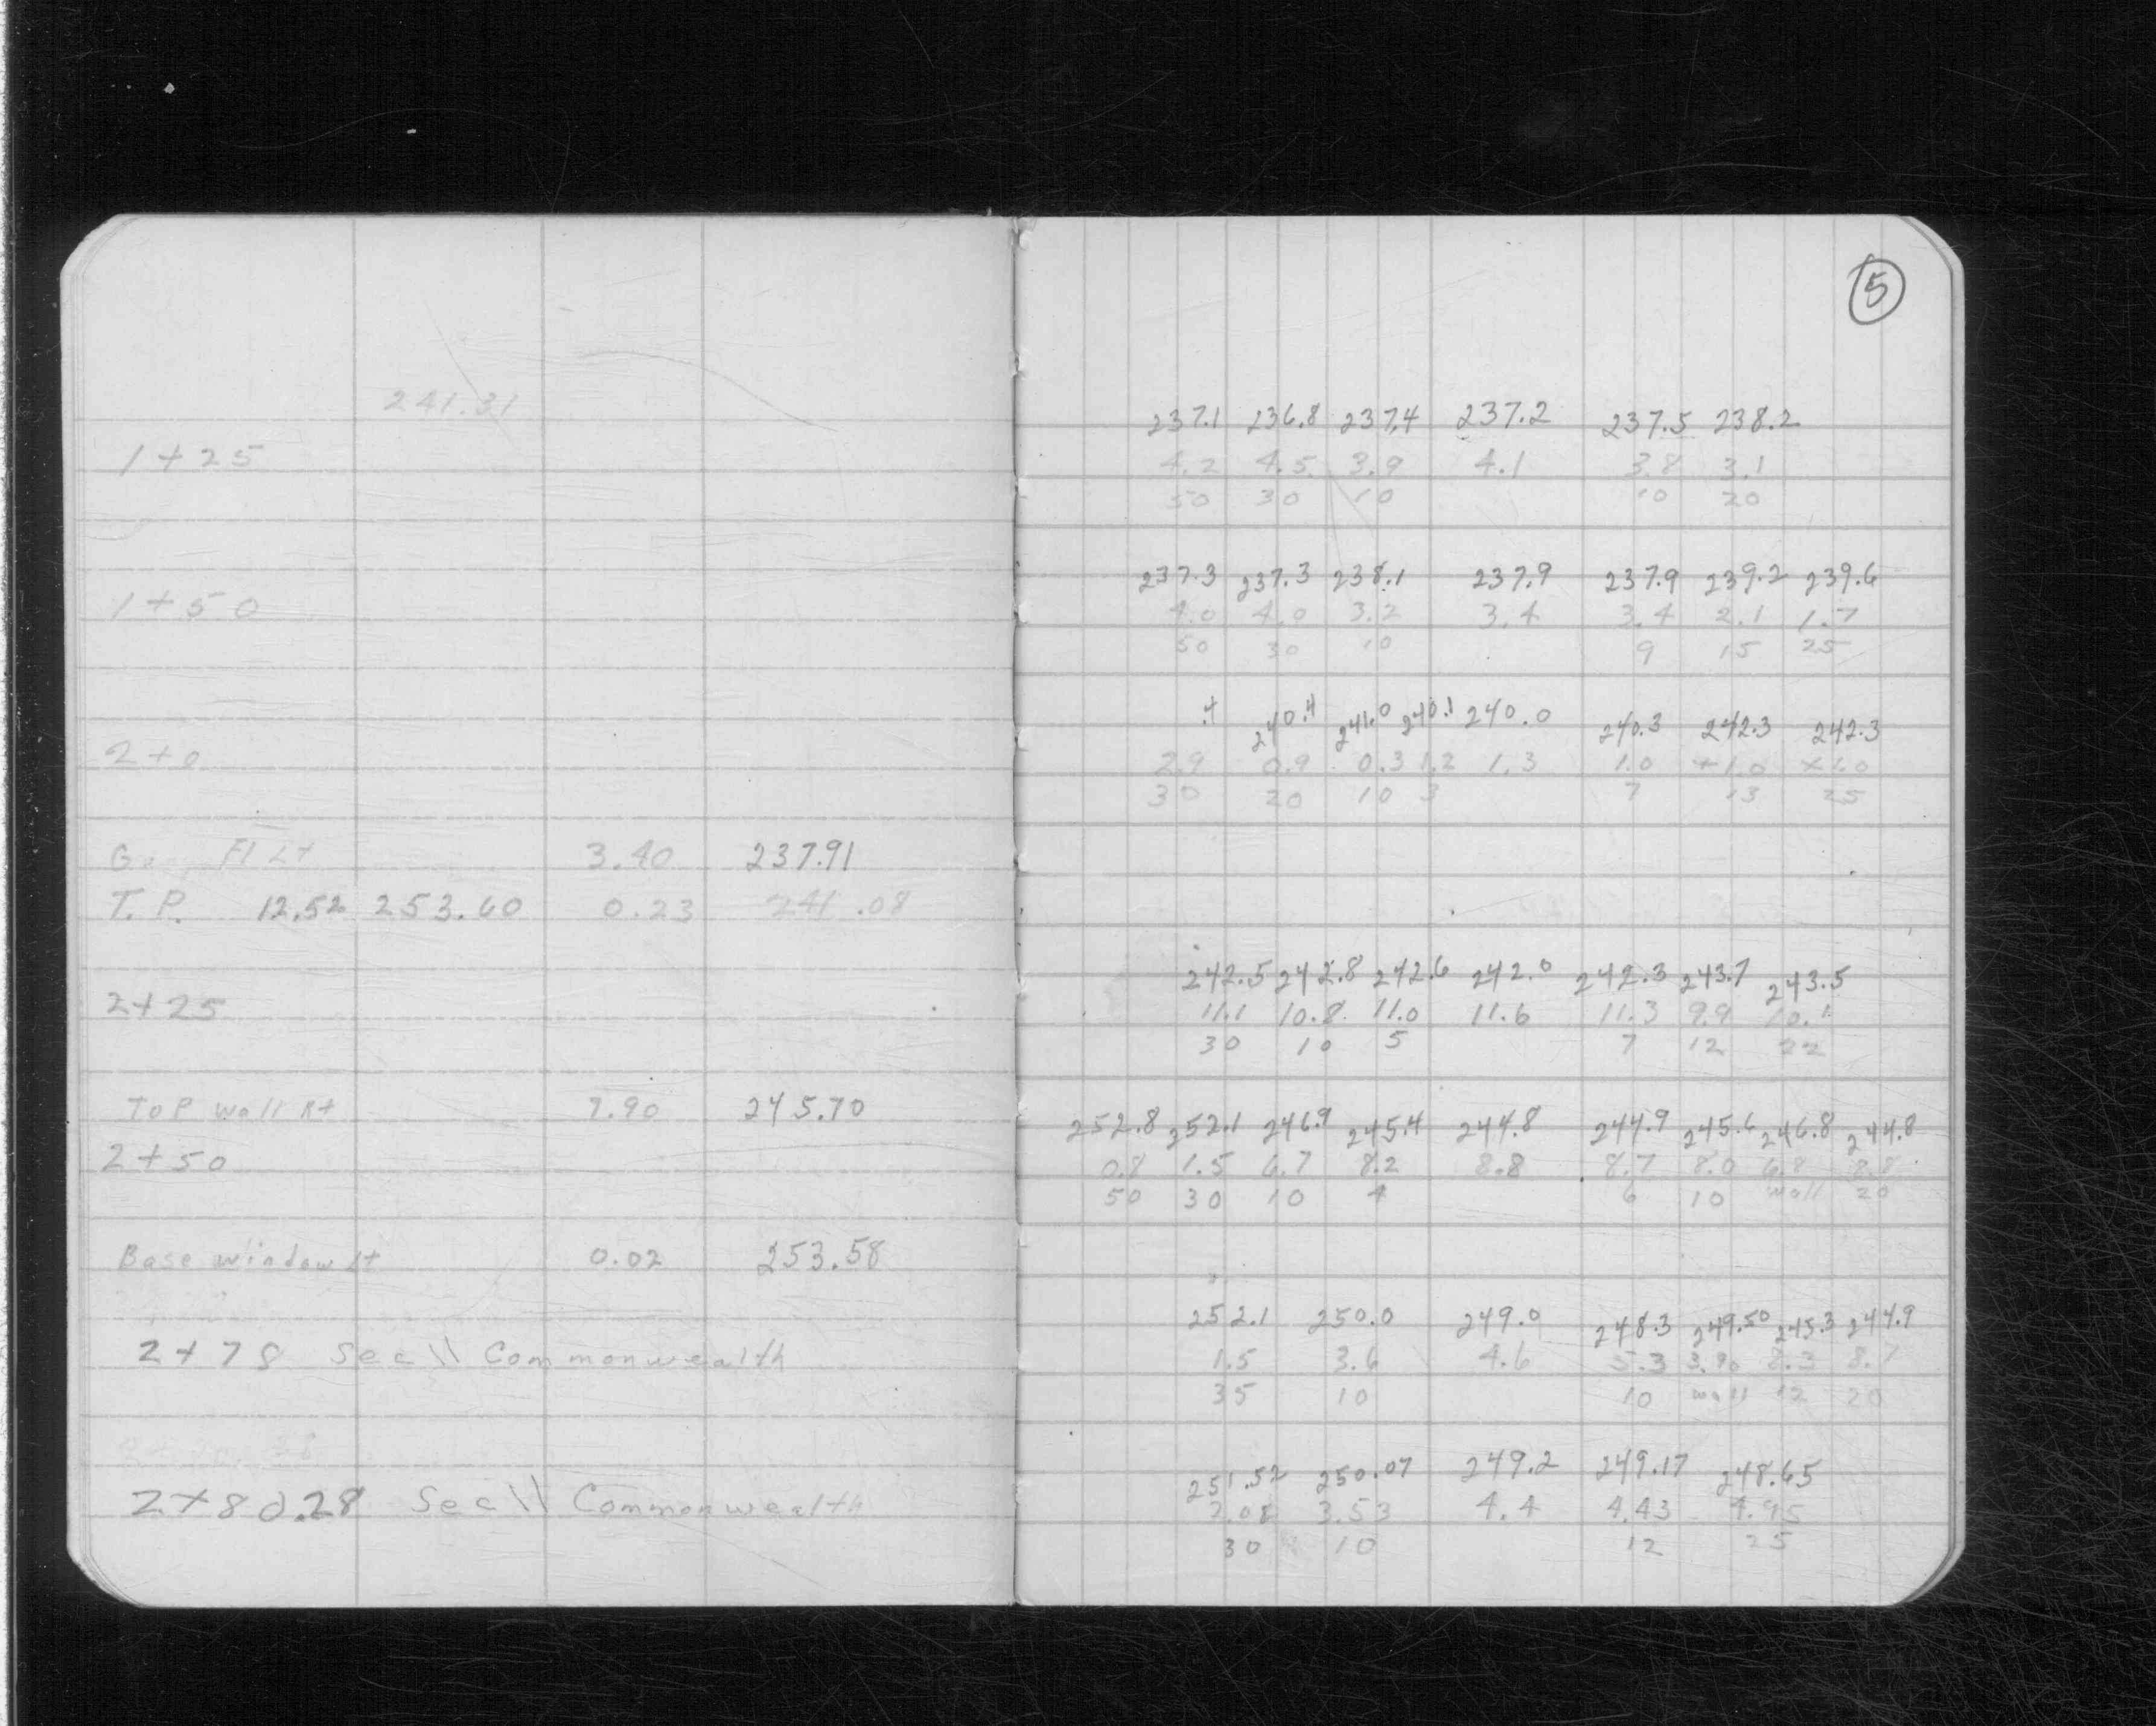 241.31
1+25
1+50
2+0
Ga Fl Lt 3.40 237.91
T.P. 12.52 253.60 0.23 241.08
2+25
Top wall Rt 7.90 245.70
2+50
Base window Lt 0.02 253.58
2+78 Sec \\ Commonwealth
2+80.28 Sec \\ Commonwealth
5
237.1 236.8 237.4 237.2 237.5 238.2
4.2 4.5 3.9 4.1 3.8 3.1
50 30 10 10 20
237.3 237.3 238.1 237.9 237.9 239.2 239.6
4.0 4.0 3.2 3.4 3.4 2.1 1.7
50 30 10 9 15 25
.4 240.4 241.0 240.1 240.0 240.3 242.3 242.3
2.9 0.9 0.3 1.2 1.3 1.0 +1.0 +1.0
30 20 10 3 7 13 25
242.5 242.8 242.6 242.0 242.3 243.7 243.5
11.1 10.8 11.0 11.6 11.3 9.9 10.1
30 10 5 7 12 22
252.8 252.1 246.9 245.4 244.8 244.9 245.6 246.8 244.8
0.8 1.5 6.7 8.2 8.8 8.7 8.0 6.8 8.8
50 30 10 4 6 10 wall 20
252.1 250.0 249.0 248.3 249.50 245.3 244.9
1.5 3.6 4.6 5.3 3.90 8.3 8.7
35 10 10 wall 12 20
251.52 250.07 249.2 249.17 248.65
2.08 3.53 4.4 4.43 4.95
30 10 12 25